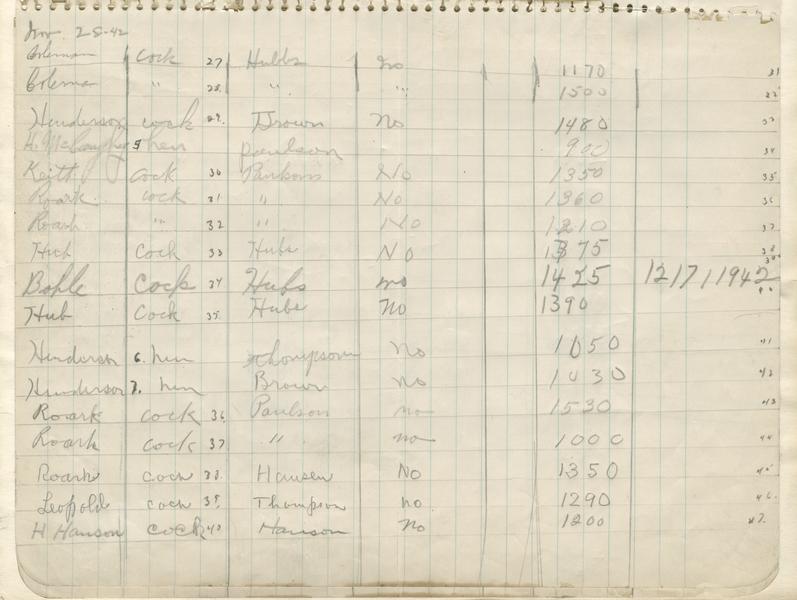 Nov 28-42
Coleman cock 27 Hubbs no 1170 31
Coleman " 28. " " 1500 32
Henderson cock 29. Brown No 1480 33
H. McCaughey 5 hen Paulson 900 34
Keith cock 30 Parkons No 1350 35
Roark cock 31 " No 1360 36
Roark " 32 " No 1210 37
Hub cock 33 Hubs No 1375 38
Bohle Cock 34 Hubs no 1425 12/7/1942
Hub Cock 35. Hubs No 1390
Henderson 6. hen Thompson No 1050 41
Henderson 7. hen Brown no 1030 42
Roark cock 36. Paulson no 1530 43
Roark cock 37 " no 1000 44
Roark cock 38. Hansen No 1350 45
Leopold cock 39. Thompson no 1290 46.
H Hanson cock 40 Hanson No 1200 47.